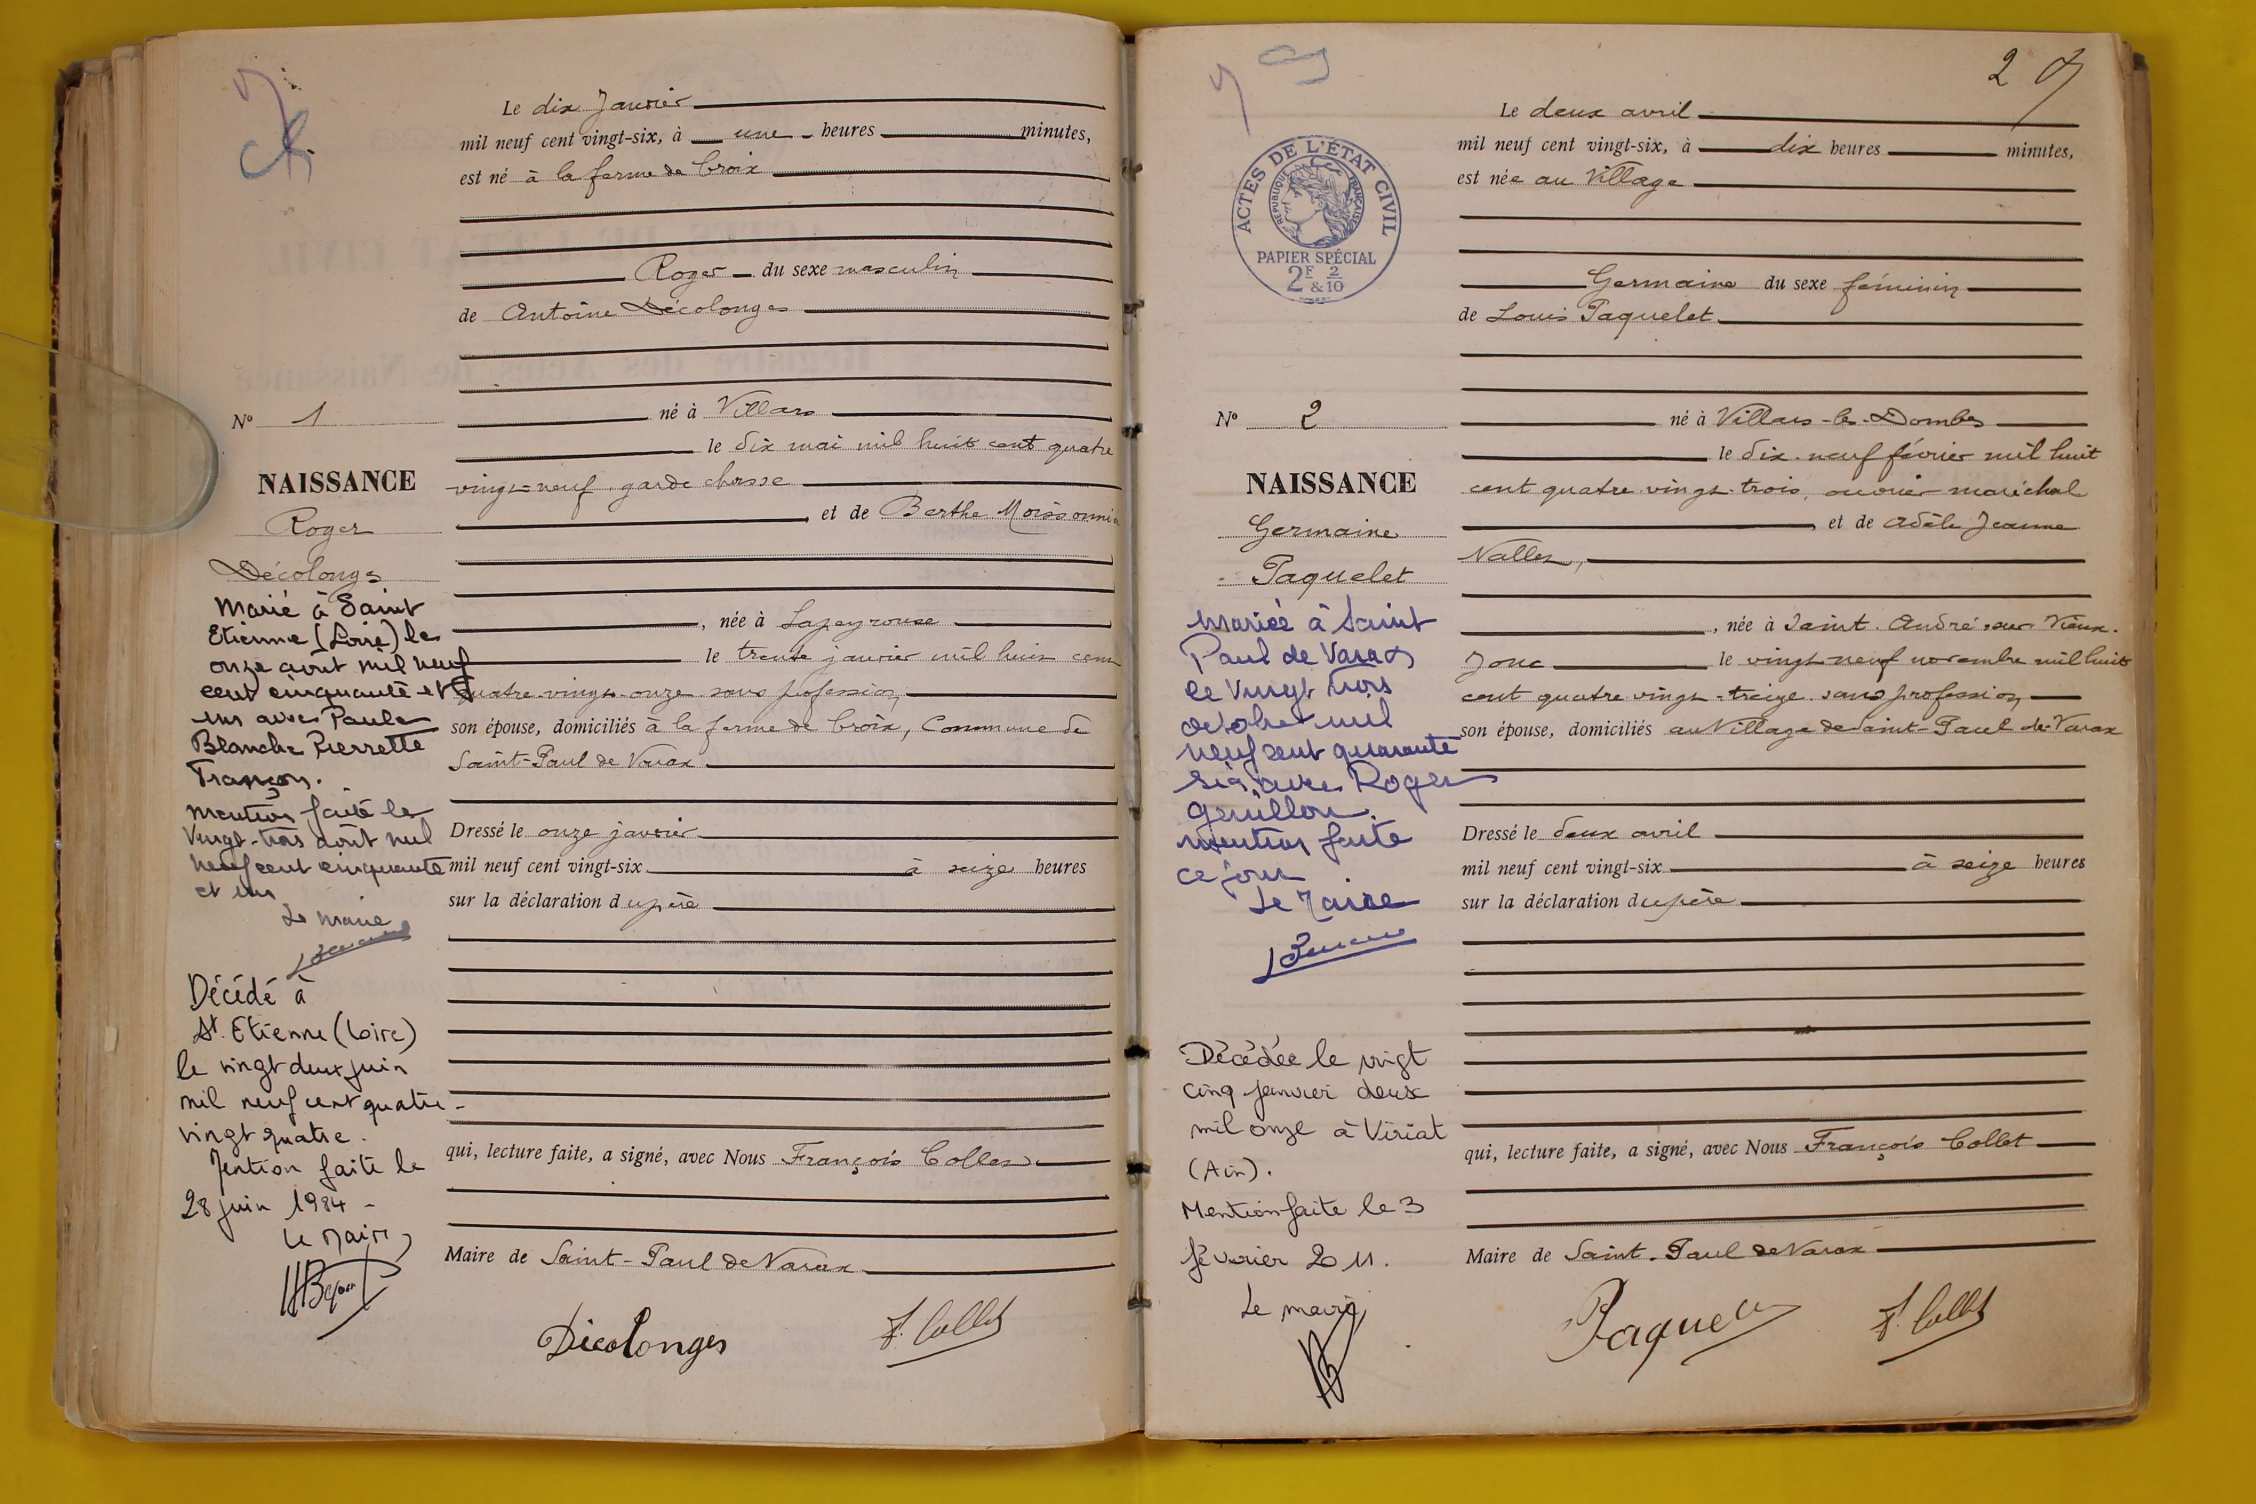 Le dix Janvier
mil neuf cent vingt-six, à une heures minutes,
est né à la ferme de Croix
Roger du sexe masculin
de Antoine Décolonges
né à Villars
le dix mai mil huit cent quatre
vingt-neuf, garde chasse
, et de Berthe Moissonnier
, née à Lapeyrouse
le trente janvier mil huit cent
quatre-vingt-onze sans profession,
son épouse, domiciliés à la ferme de Croix, Commune de
Saint-Paul de Varax
Dressé le onze janvier
mil neuf cent vingt-six à seize heures
sur la déclaration du père
qui, lecture faite, a signé, avec Nous François Collet
Maire de Saint-Paul de Varax
Décolonges
F. Collet
N° 1
NAISSANCE
Roger
Décolonges
Marié à Saint
Etienne (Loire) le
onze août mil neuf
cent cinquante et
un avec Paule
Blanche Pierrette
Françon.
Mention faite le
vingt-trois août mil
neuf cent cinquante
et un
Le Maire
Décédé à
St. Etienne (Loire)
le vingt deux juin
mil neuf cent quatre-
vingt quatre.
Mention faite le
28 juin 1984 -
Le Maire,
2
Le deux avril
mil neuf cent vingt-six, à dix heures minutes,
est née au Village
Germaine du sexe féminin
de Louis Paquelet
né à Villars-les-Dombes
le dix-neuf février mil huit
cent quatre-vingt-trois, ouvrier maréchal
, et de Adèle Jeanne
, née à Saint-André-sur-Vieux-
Jonc le vingt-neuf novembre mil huit
cent quatre-vingt-treize sans profession
son épouse, domiciliés au Village de Saint-Paul de Varax
Dressé le deux avril
mil neuf cent vingt-six à seize heures
sur la déclaration du père
qui, lecture faite, a signé, avec Nous François Collet
Maire de Saint-Paul de Varax
Paquelet
F. Collet
ACTES DE L'ÉTAT CIVIL
RÉPUBLIQUE FRANÇAISE
PAPIER SPÉCIAL
2F & 2/10
N° 2
NAISSANCE
Germaine
Paquelet
Mariée à Saint
Paul de Varax
le vingt trois
octobre mil
neuf cent quarante
six avec Roger
Guillon.
Mention faite
ce jour
Le Maire
Décédée le vingt
cinq janvier deux
mil onze à Viriat
(Ain).
Mention faite le 3
février 2011.
Le maire,